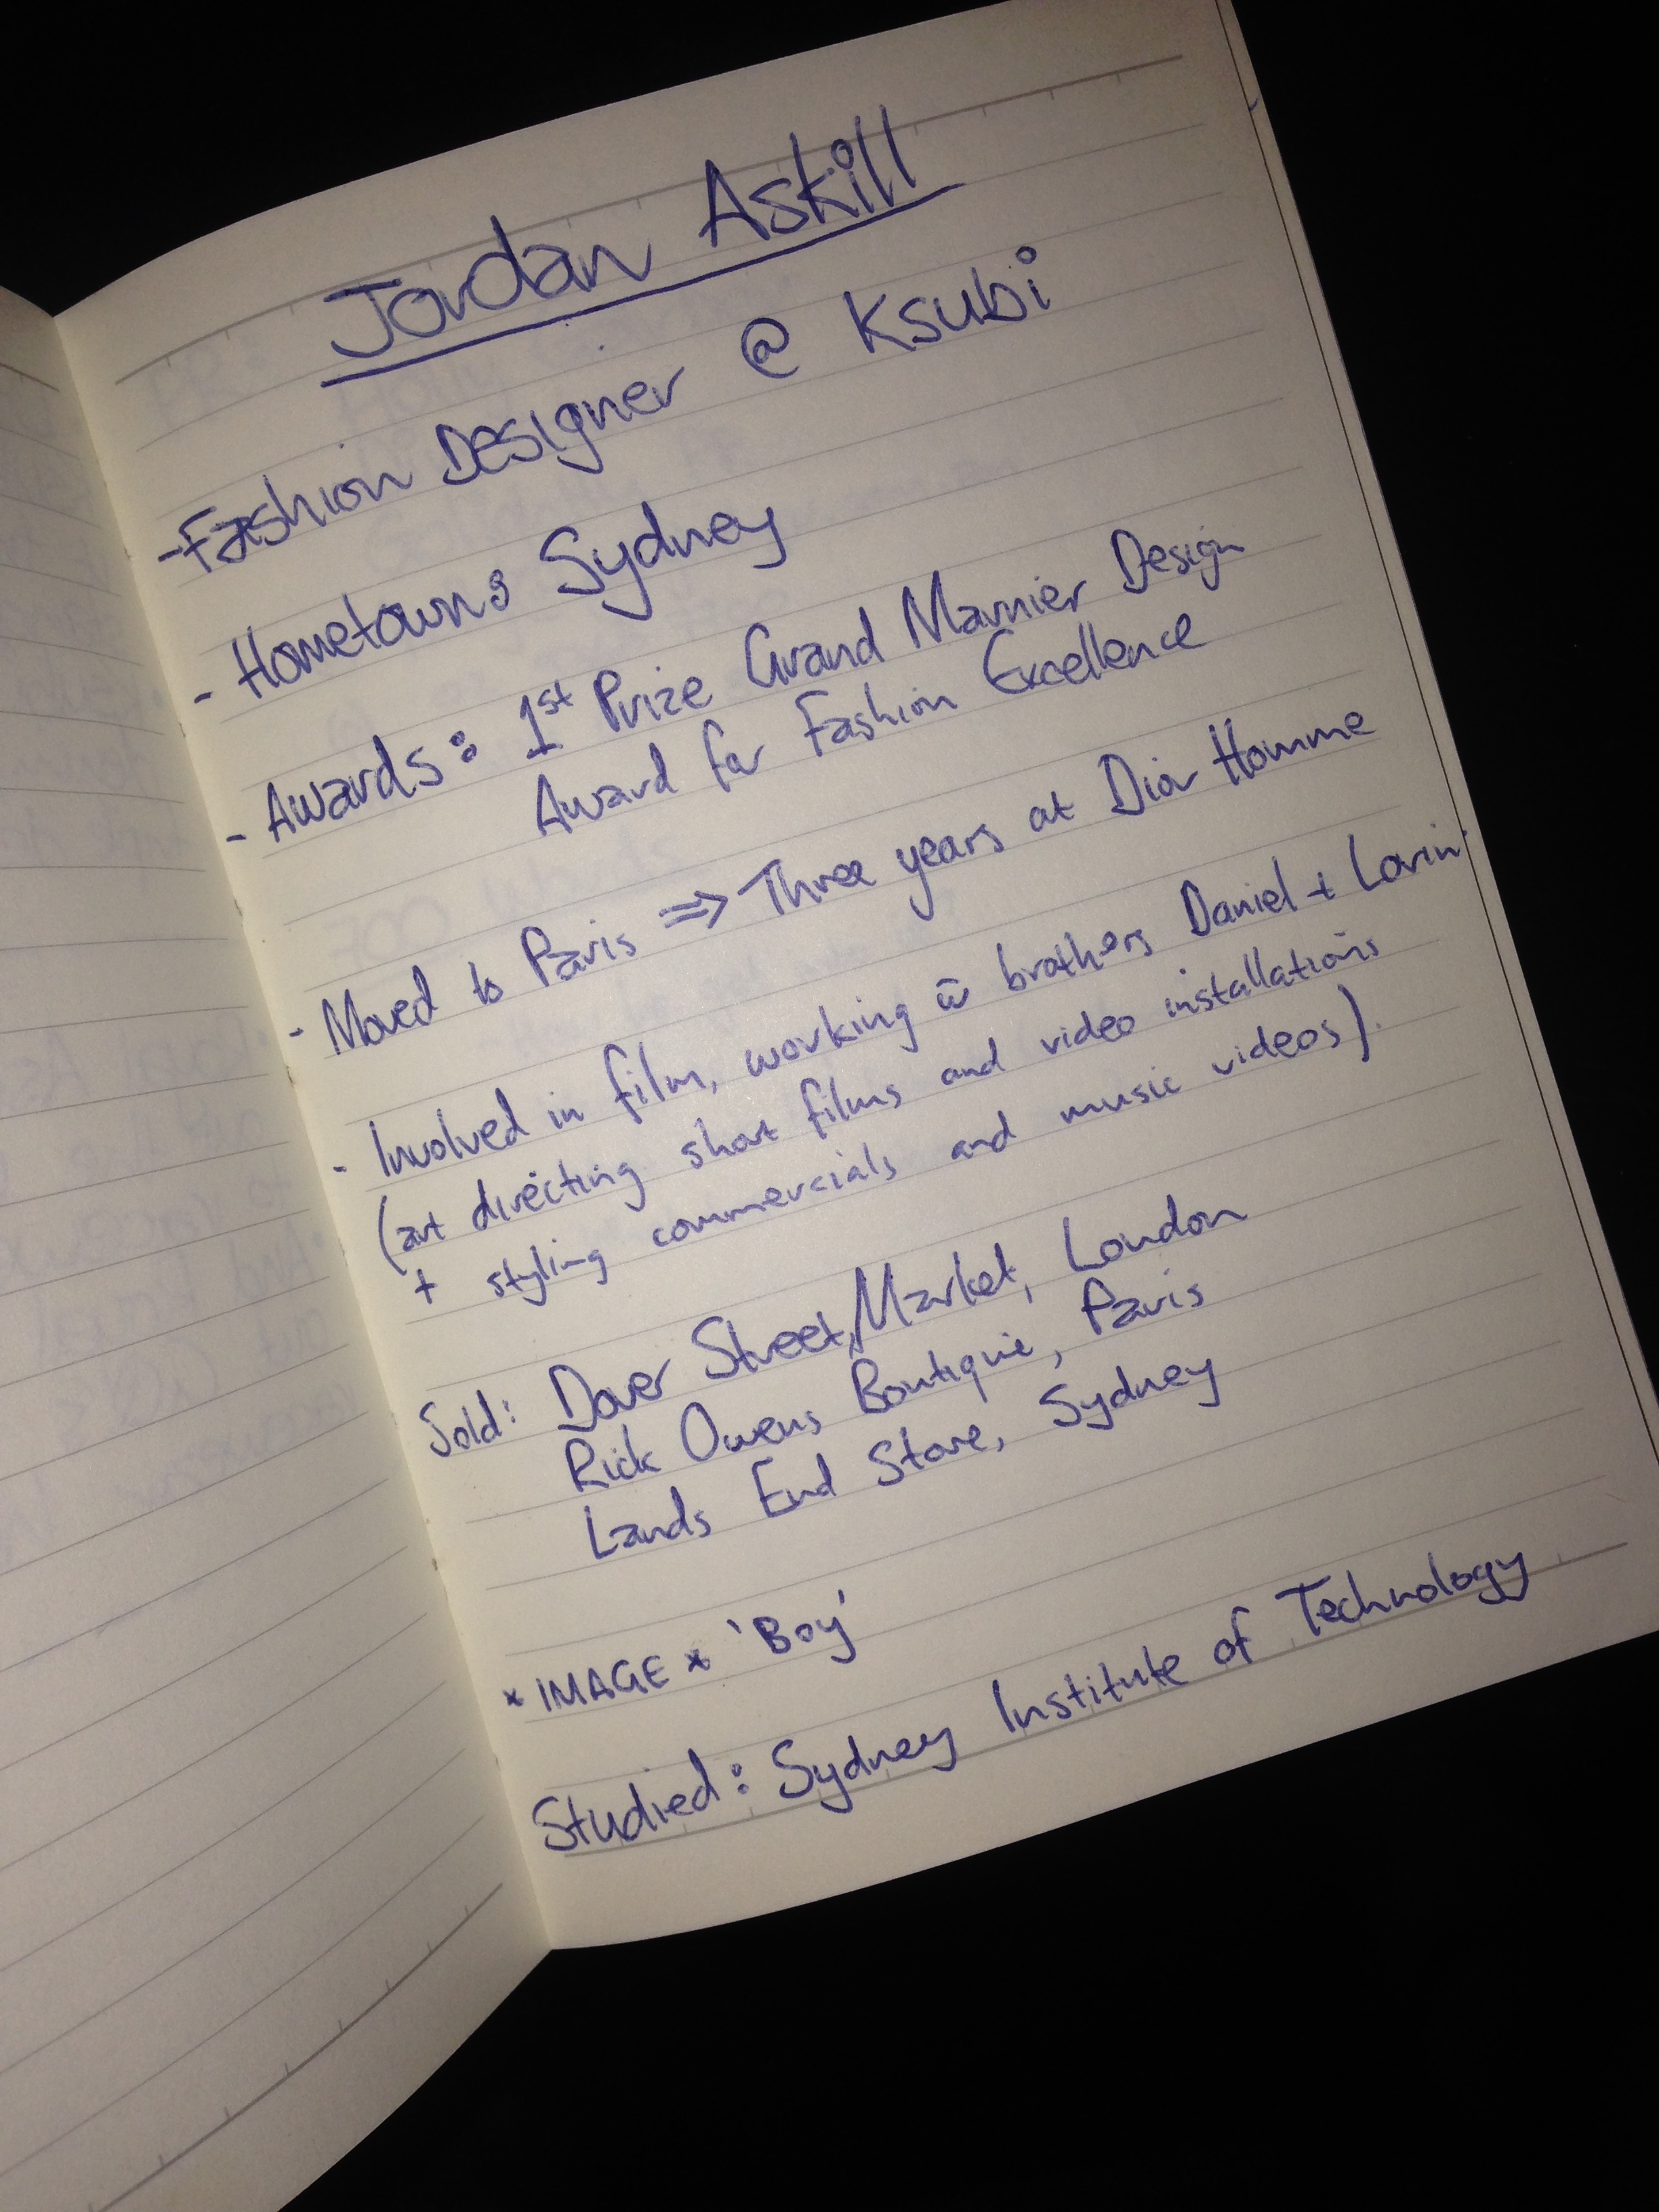 Jordan Askill
-Fashion Designer @ Ksubi
- Hometown: Sydney
- Awards: 1st Prize Grand Marnier Design
Award for Fashion Excellence
- Moved to Paris ⇒ Three years at Dior Homme
- Involved in film, working w̄ brothers Daniel + Lorin
(art directing short films and video installations
+ styling commercials and music videos).
Sold: Dover Street Market, London
Rick Owens Boutique, Paris
Lands End Store, Sydney
* IMAGE * 'Boy'
Studied: Sydney Institute of Technology